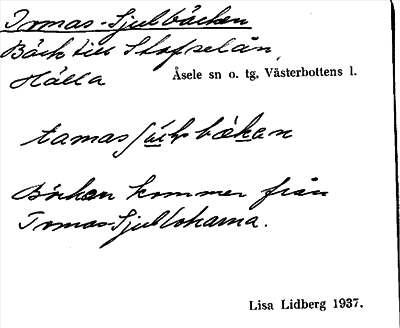 Tomas-Sjulbäcken
Bäck till Stafselån,
Hälla Åsele sn o. tg. Västerbottens l.
Bäcken kommer från
Tomas-Sjultokarna.
Lisa Lidberg 1937.